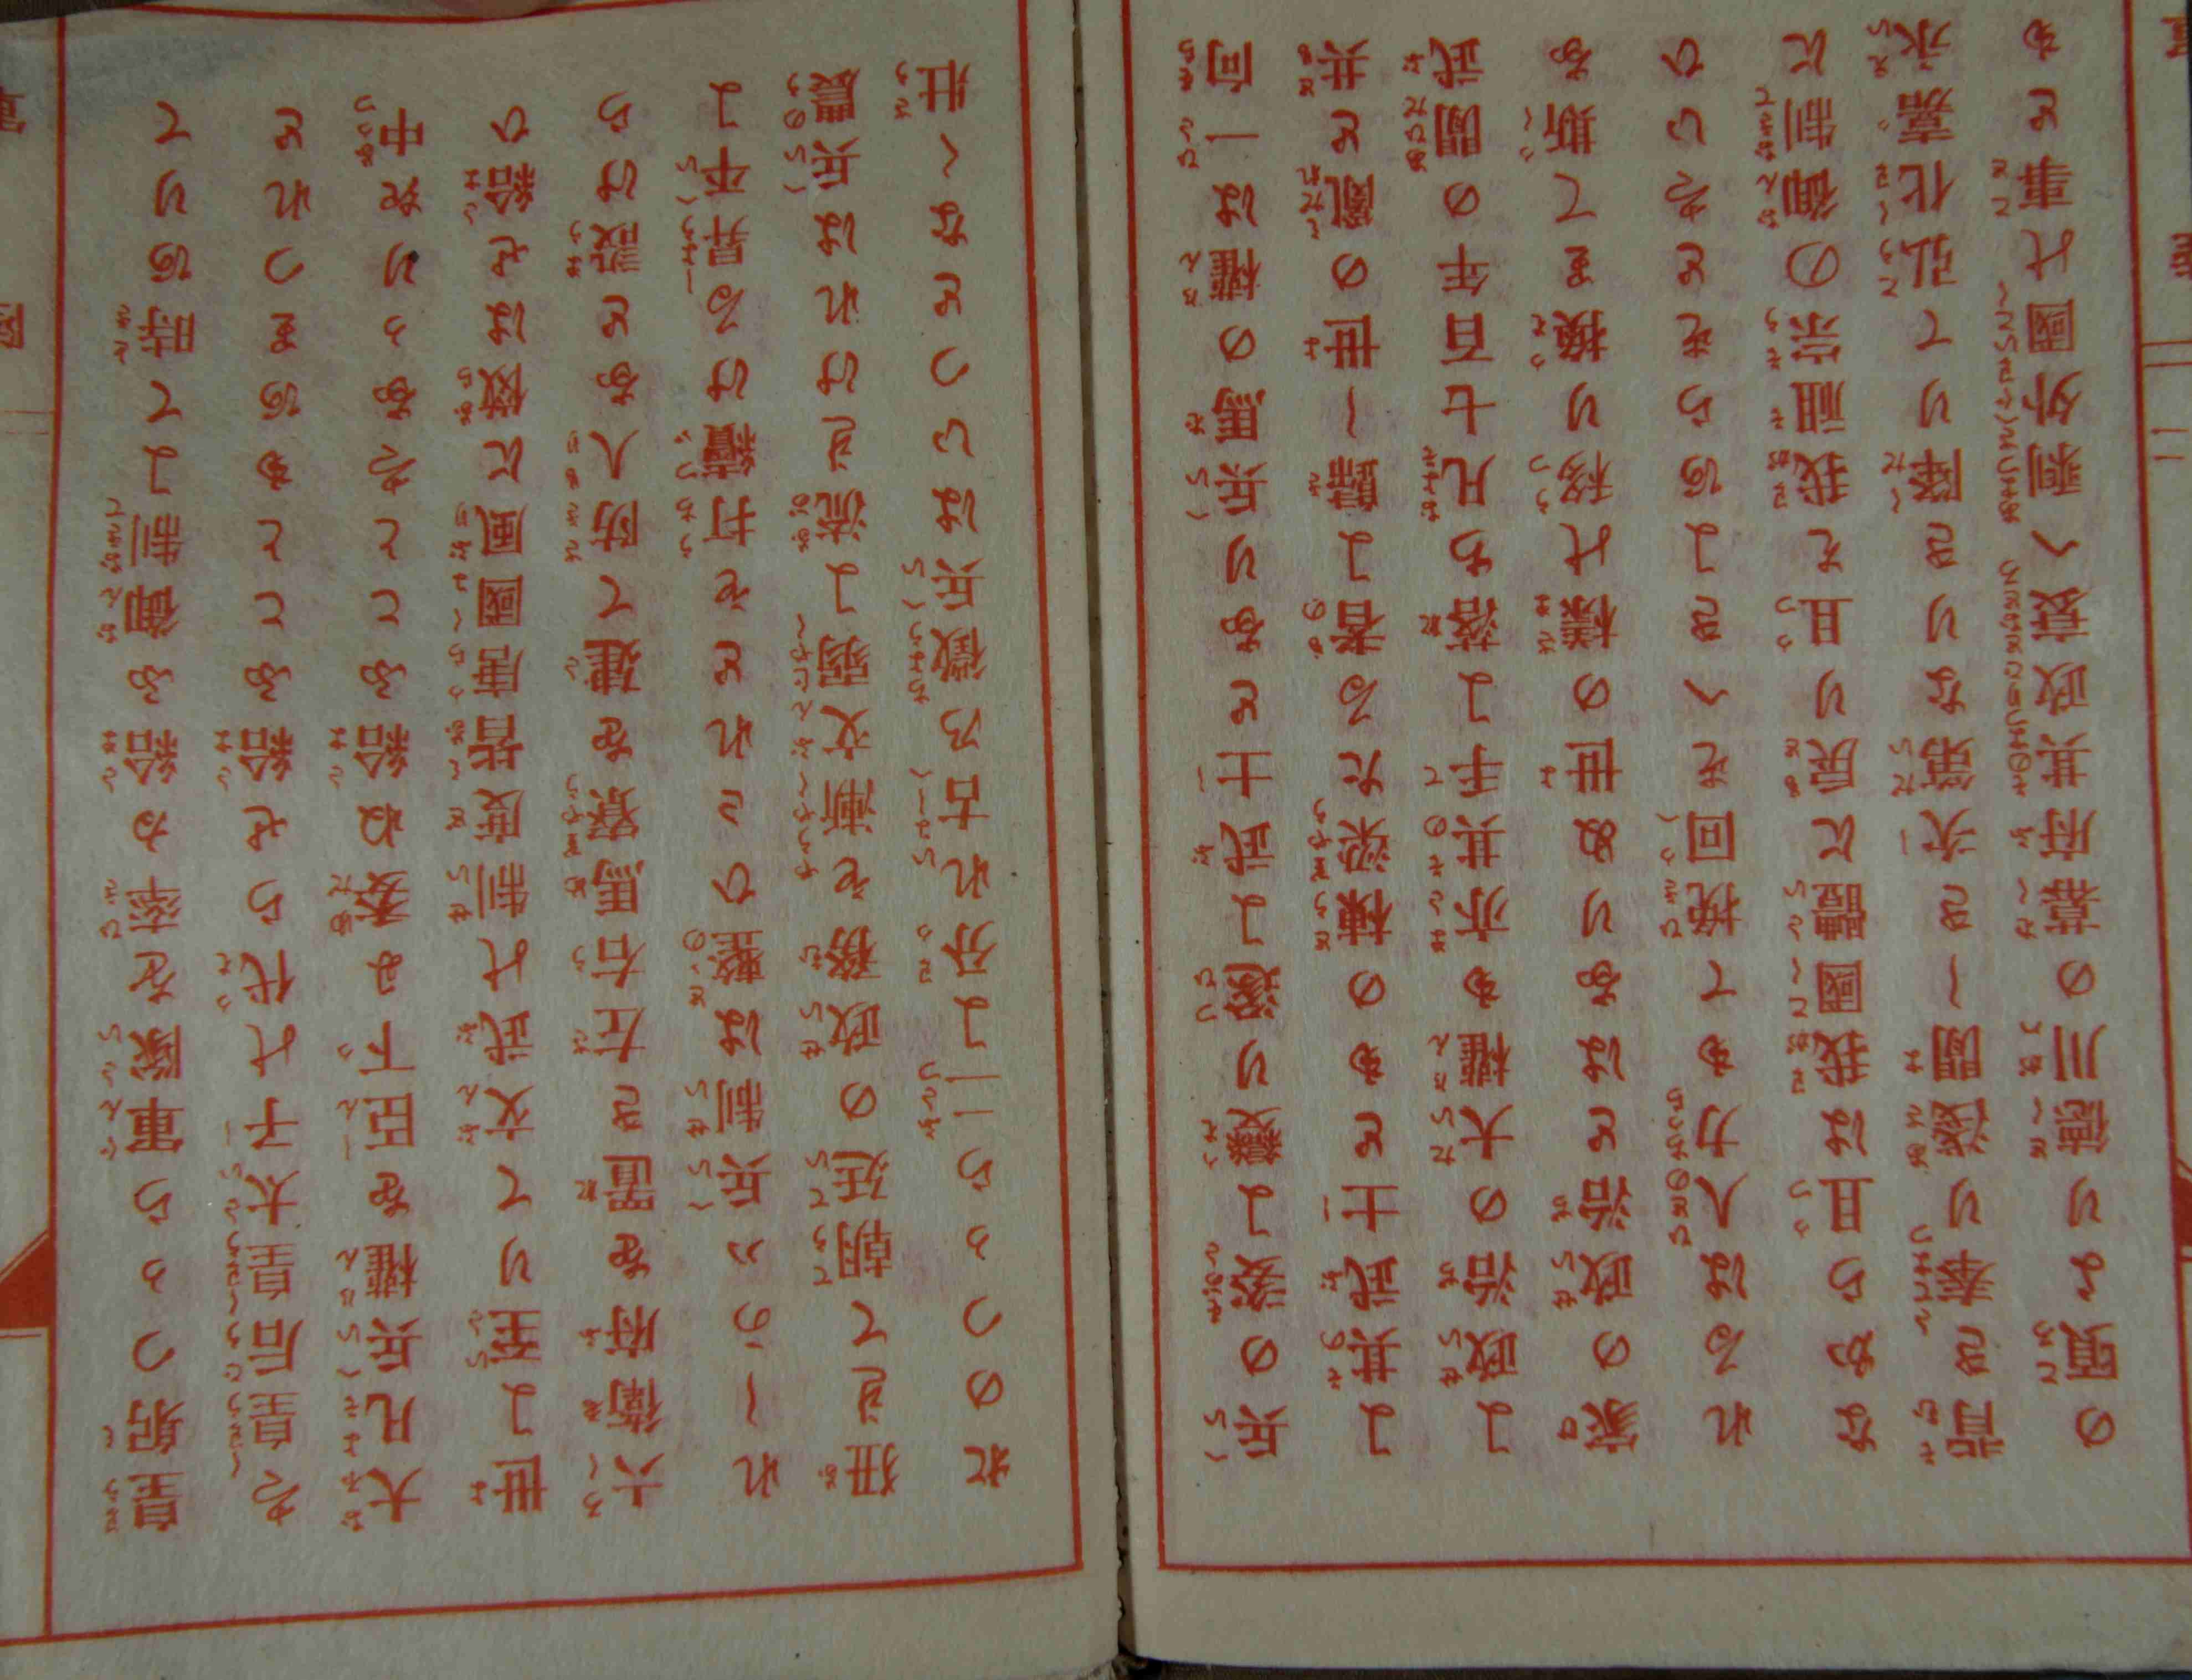 皇躬つゝから軍隊を率ゐ給ふ御制にて時ありて
は皇后皇太子の代らせ給ふこともありつれと
大凡兵權を臣下に委ね給ふことはなかりき中
世に至りて文武の制度皆唐國風に傚はせ給ひ
六衛府を置き左右馬寮を建て防人なと設けら
れしかハ兵制は整ひたれとも打續ける昇平に
狃れて朝廷の政務も漸文弱に流れけれは兵農
おのつから二に分れ古乃徴兵はいつとなく壯
兵の姿に變り遂に武士となり兵馬の權は一向
に其武士ともの棟梁たる者に歸し世の亂と共
に政治の大權も亦其手に落ち凡七百年の間武
家の政治とはなりぬ世の樣の移り換りて斯な
れるは人力もて挽回すへきにあらすとはいひ
なから且は我國體に戻り且は我祖宗の御制に
背き奉り淺間しき次第なりき降りて弘化嘉永
の頃より德川の幕府其政衰へ剩外國の事とも